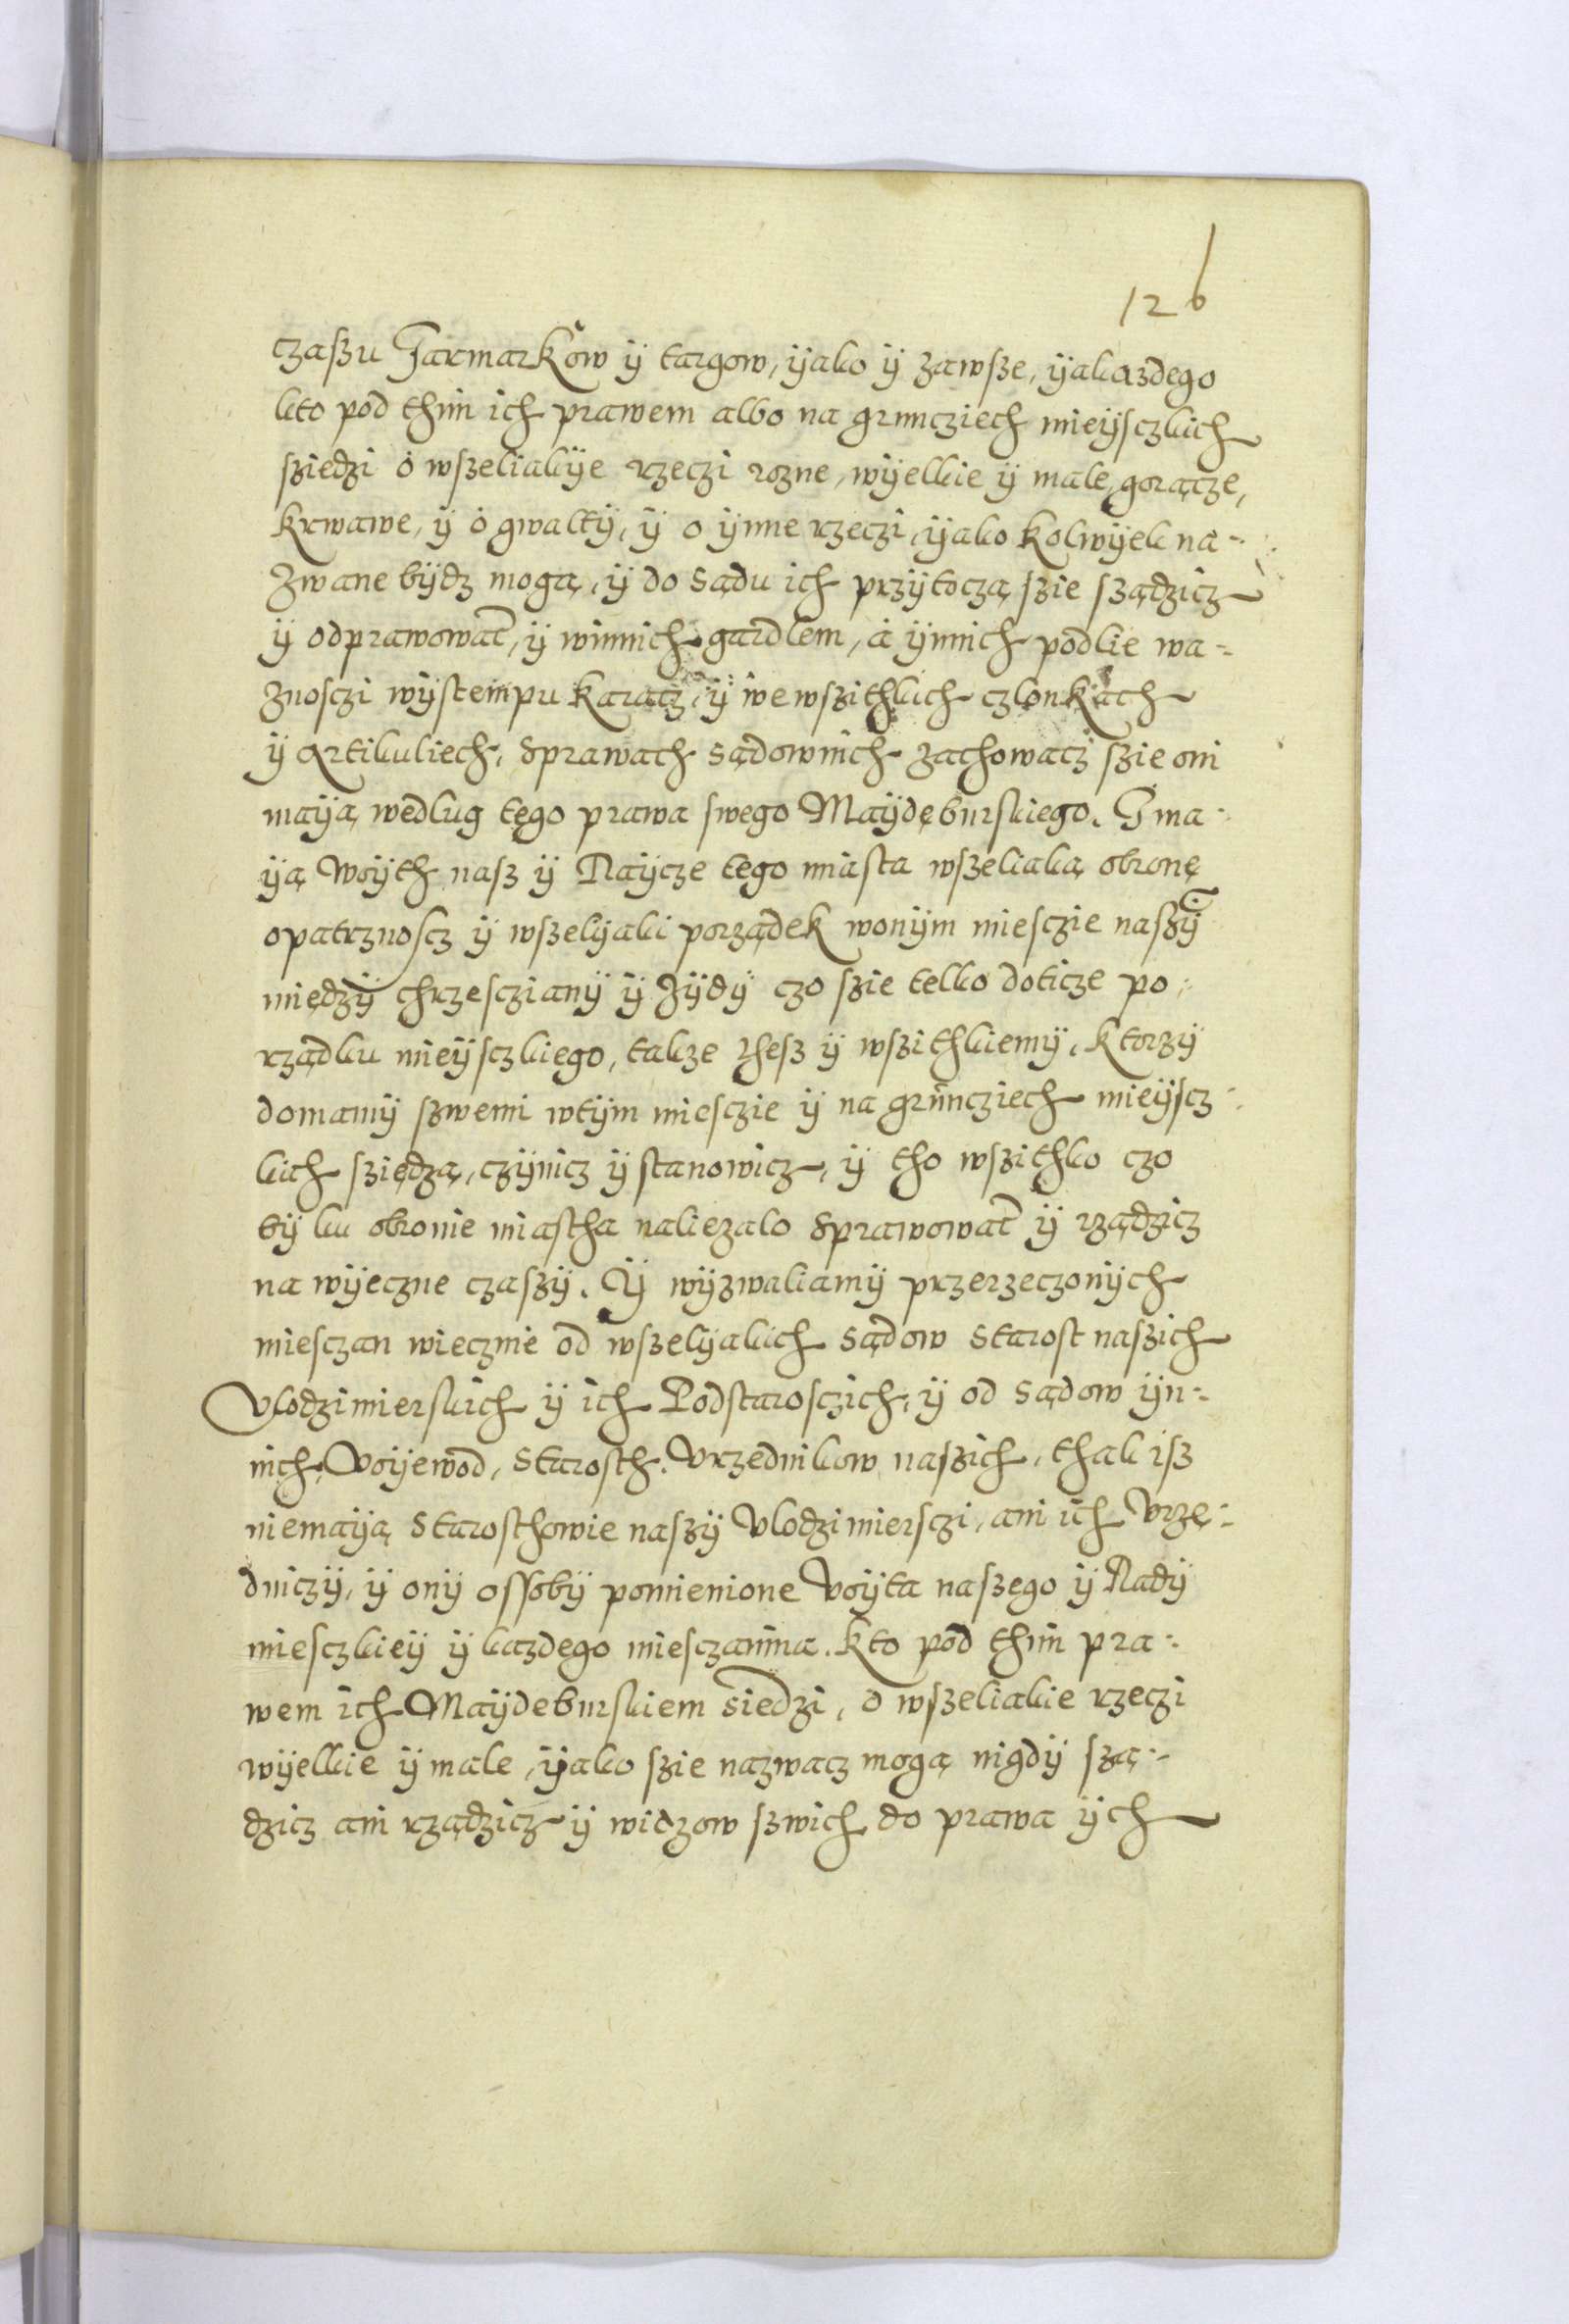 126
czaszu Jarmarkow ÿ targow, ÿako ÿ zawsze, ÿakazdego
kto pod thim ich prawem albo na grunciech mieÿsczkich
sziedzi o wszeliakÿe rzeczi rozne, wÿelkie ÿ male, gorącze,
krwawe, ÿ o gwaltÿ, ÿ o ÿnne rzeczi, ÿako kolwÿek na-
zwane bÿdz mogą, ÿ do sądu ich przÿtoczą szie sządzicz
ÿ odprawowat, ÿ winnich gardlem, a ÿnnich podlie wa-
znosczi wÿstempu karacz, ÿ we wszithkich czlonkach
ÿ artikuliech, sprawach sądownich zachowacz szie oni
maÿą wedlug tego prawa swego Maÿdęburskiego. J ma-
ÿą woÿth nasz ÿ Raÿcze tego miasta wszeliaką obronę
opatrznoscz ÿ wszelÿaki porządek wonÿm miesczie naszÿ
międzÿ chrzescizanÿ ÿ Zÿdÿ czo szie telko doticze po-
rządku mieÿsczkiego, takze thesz ÿ wszithkiemÿ, ktorzÿ
domamÿ szwemi wtÿm miesczie ÿ na gruncziech mieÿscz-
kich sziędzą, czÿnicz ÿ stanowicz, ÿ tho wszithko czo
bÿ ku obronie miastha naliezalo sprawowat ÿ rządzicz
na wÿeczne czaszÿ. Ÿ wÿzwaliamÿ przerzeczonÿch
miesczan wiecznie od wszelÿakich sądow starost naszich
Vlodzimierskich ÿ ich Podstarosczich, ÿ od sądow ÿn-
nich, Voÿewod, starosth, Vrzednikow naszich, thak isz
niemaÿą starosthowie naszÿ Vlodzimiersczi, ani ich Vrzę-
dniczÿ, ÿ onÿ ossobÿ pomienione Voÿta naszego ÿ Radÿ
miesczkieÿ ÿ kazdego miesczanina. kto pod thim pra-
wem ich Maÿdeburskiem siedzi, o wszeliakie rzeczi
wÿelkie ÿ male, ÿako szie nazwacz mogą nigdÿ szą-
dzicz ani rządzicz ÿ widzow szwich do prawa ÿch